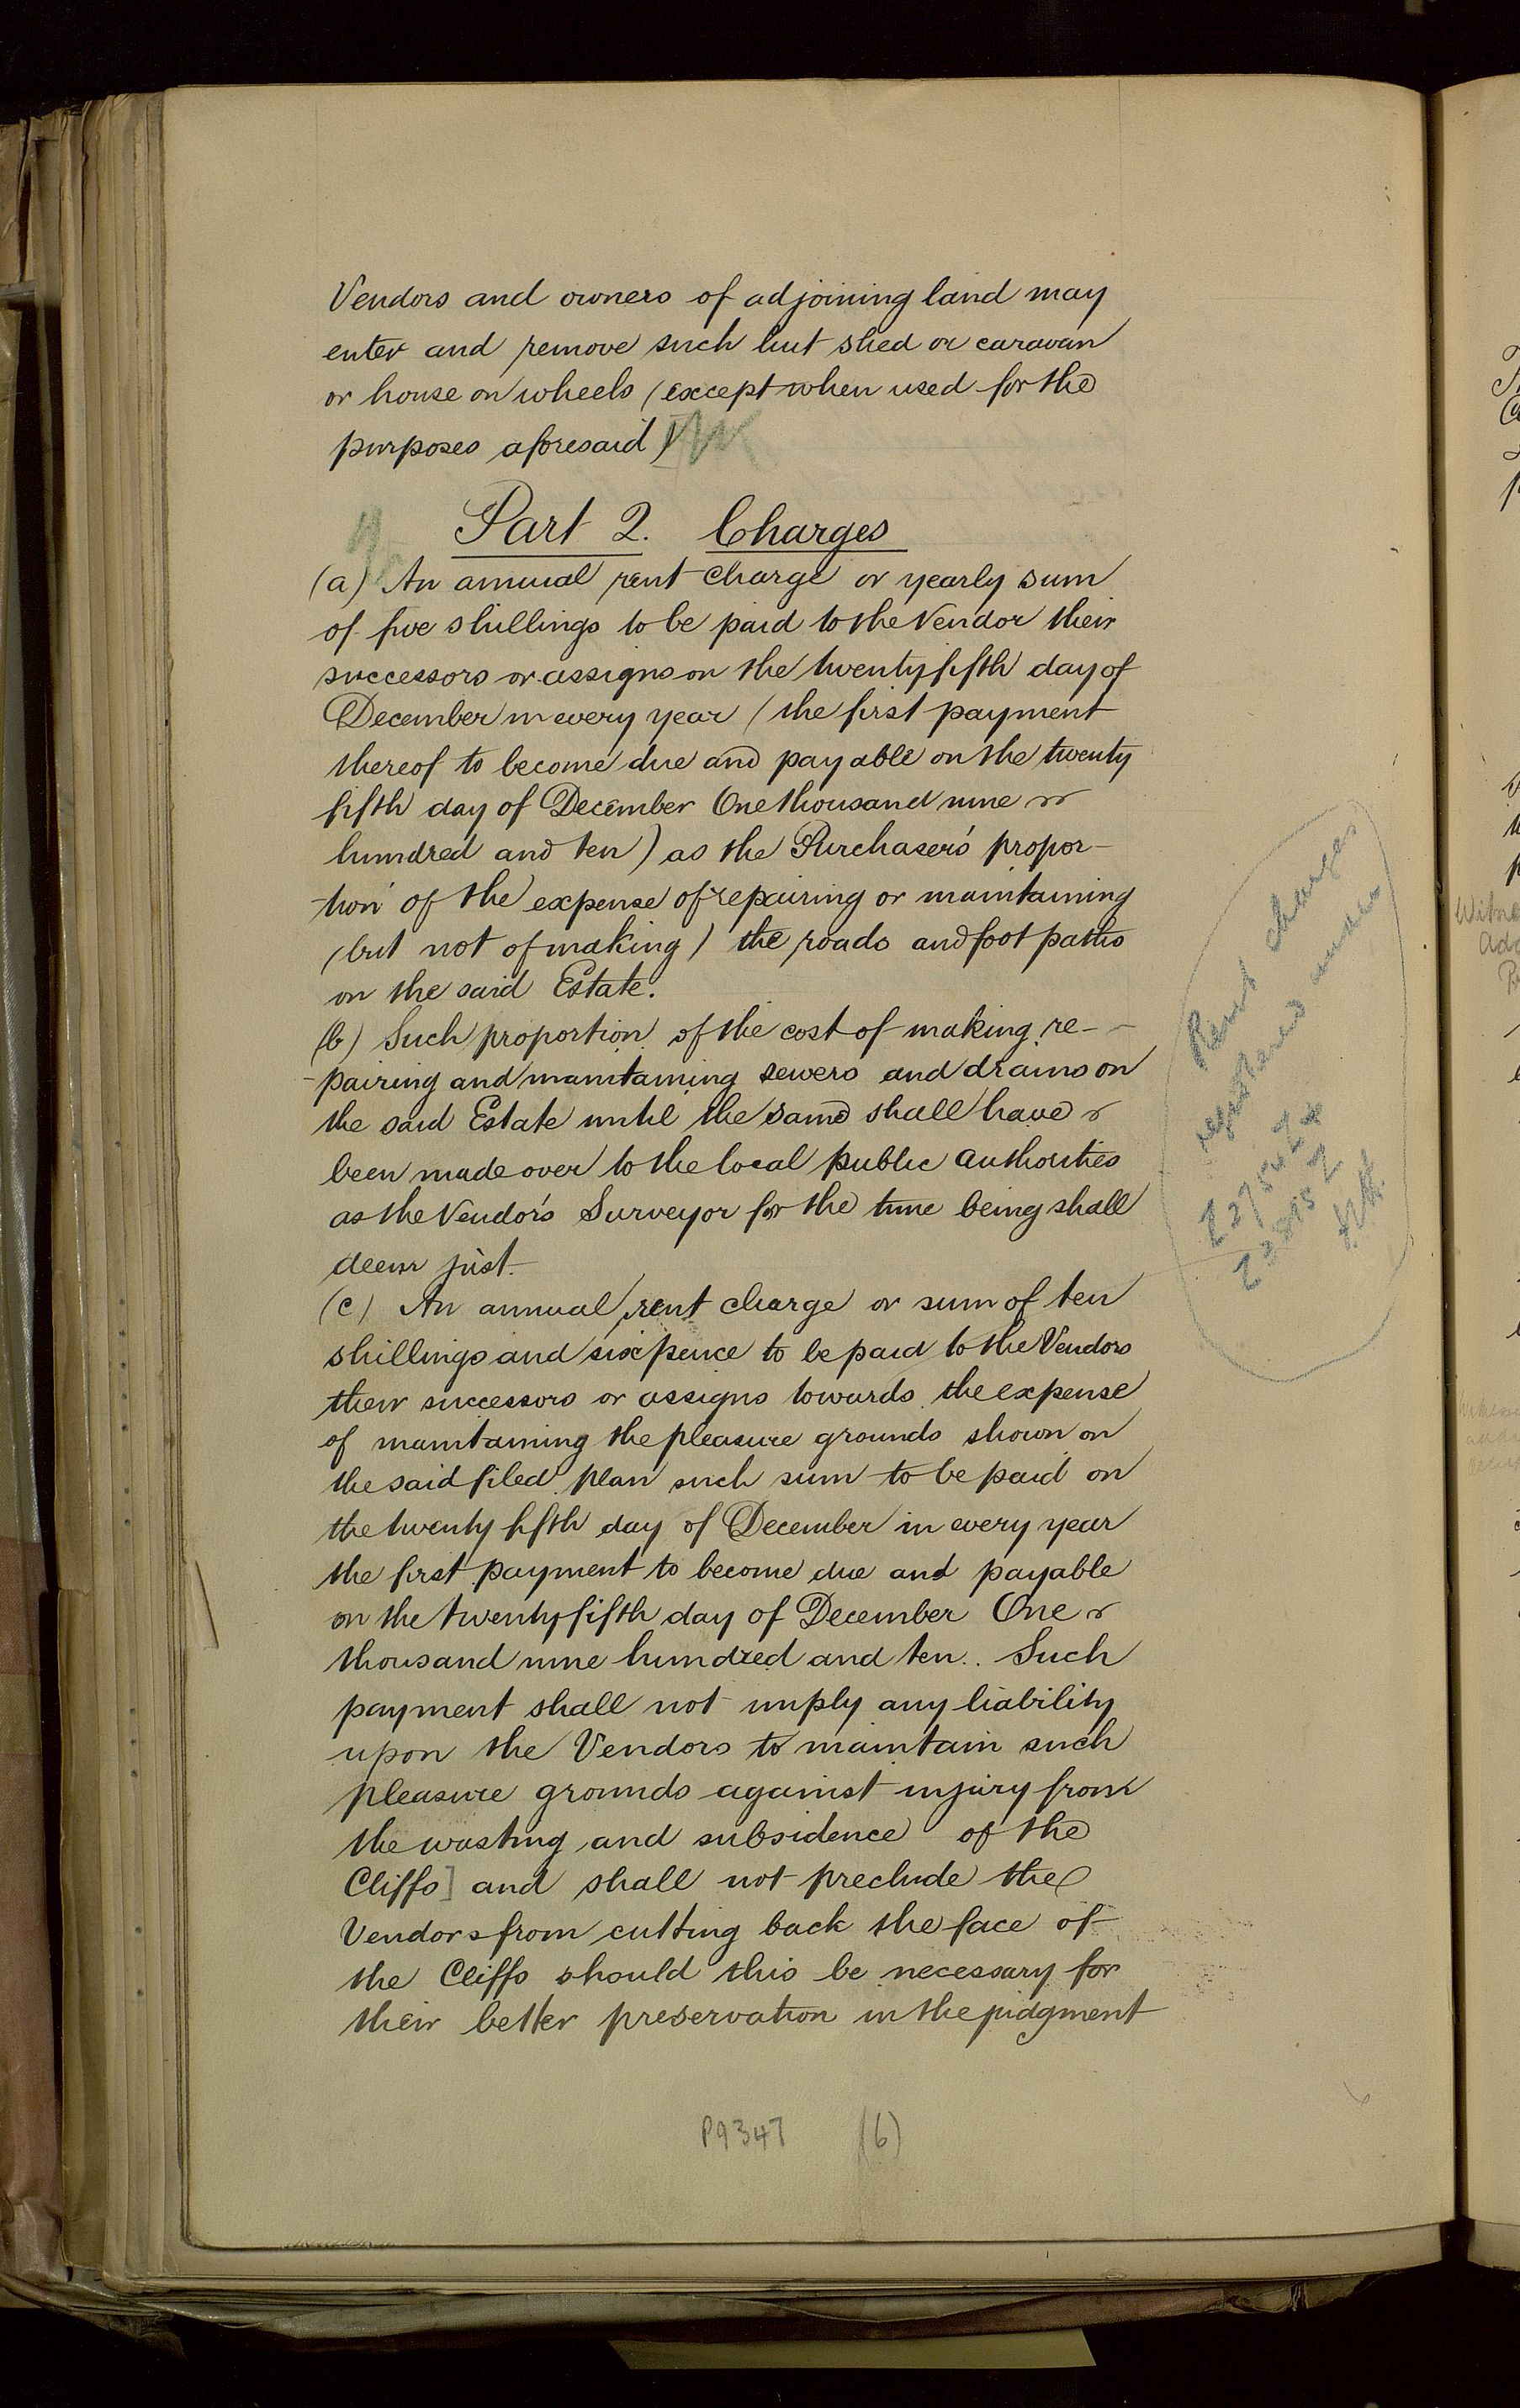 Vendors and owners of adjoining land may
enter and remove such hut shed or caravan
or house on wheels (except when used for the
purposes aforesaid)
Part 2. Charges
(a) An annual rent charge or yearly sum
of five shillings to be paid to the Vendor their
successors or assigns on the twenty fifth day of
December in every year (the first payment
thereof to become due and payable on the twenty
fifth day of December One thousand nine
hundred and ten) as the Purchaser's propor-
-tion of the expense of repairing or maintaining
(but not of making) the roads and foot paths
on the said Estate.
(b) Such proportion of the cost of making re-
-pairing and maintaining sewers and drains on
the said Estate until the same shall have
been made over to the local public authorities
as the Vendor's Surveyor for the time being shall
deem just.
(c) An annual rent charge or sum of ten
shillings and sixpence to be paid to the Vendors
their successors or assigns towards the expense
of maintaining the pleasure grounds shown on
the said filed plan such sum to be paid on
the twenty fifth day of December in every year
the first payment to become due and payable
on the twenty fifth day of December One
thousand nine hundred and ten. Such
payment shall not imply any liability
upon the Vendors to maintain such
pleasure grounds against injury from
the wasting and subsidence of the
Cliffs] and shall not preclude the
Vendors from cutting back the face of
the Cliffs should this be necessary for
their better preservation in the judgment
P9347 (6)
Rent charges
registered under